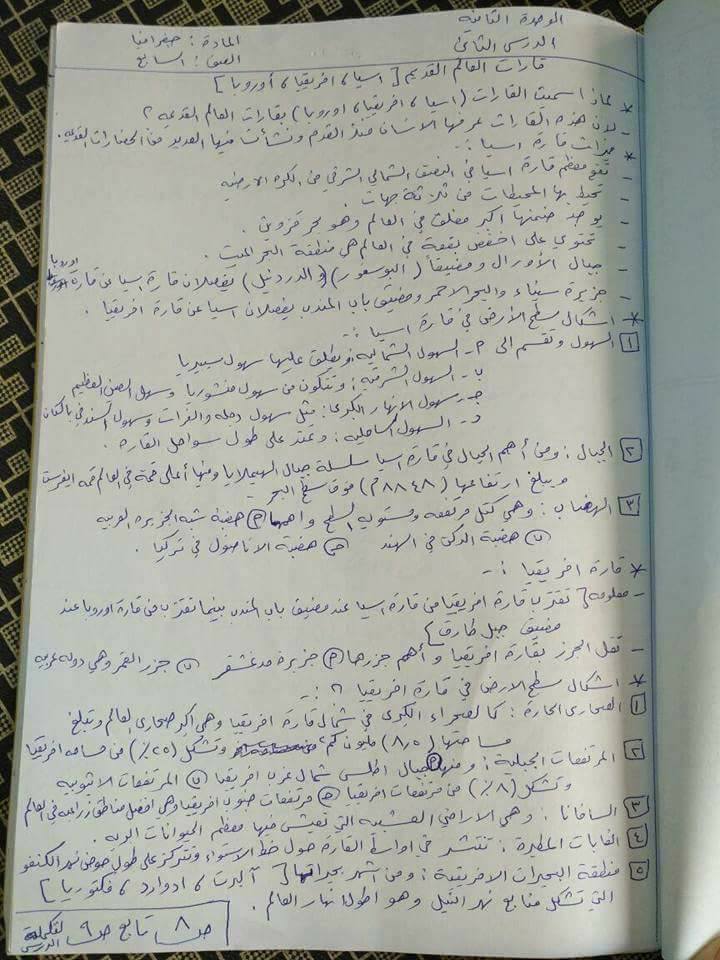 الوحدة الثانية
الدرس الثاني
المادة : جغرافيا
الصف : السابع
قارات العالم القديم [ اسيا ، افريقيا ، أوروبا ]
* لماذا سميت القارات ( اسيا ، افريقيا ، اوروبا ) بقارات العالم القديمة ؟
- لان هذه القارات عرفها الانسان منذ القدم ونشأت فيها العديد من الحضارات القديمة .
* ميزات قارة اسيا :-
- تقع معظم قارة اسيا في النصف الشمالي الشرقي من الكرة الارضية
- تحيط بها المحيطات من ثلاثة جهات .
- يوجد ضمنها اكبر مغلق في العالم وهو بحر قزوين .
- تحتوي على اخفض بقعة في العالم هي منطقة البحر الميت .
- جبال الأورال ومضيقا ( البوسفور ) و ( الدردنيل ) يفصلان قارة اسيا عن قارة اوروبا
- جزيرة سيناء والبحر الاحمر ومضيق باب المندب يفصلان اسيا عن قارة افريقيا .
* اشكال سطح الأرض في قارة اسيا :-
1 السهول وتقسم الى م - السهول الشمالية : ويطلق عليها سهول سيبيريا
ب - السهول الشرقية : وتتكون من سهول منشوريا وسهل الصين العظيم
جـ - سهول الانهار الكبرى : مثل سهول دجله والفرات وسهول السند في باكستان
د - السهول الساحلية : وتمتد على طول سواحل القارة .
٢ الجبال : ومن أهم الجبال في قارة اسيا سلسلة جبال الهيملايا وفيها أعلى قمة في العالم قمة ايفرست
ويبلغ ارتفاعها ( ٨٨٤٨ م ) فوق سطح البحر
٣ الهضاب : وهي كتل مرتفعة ومستوية السطح واهمها م هضبة شبه الجزيرة العربية
ب هضبة الدكن في الهند جـ هضبة الاناضول في تركيا .
* قارة افريقيا :-
- معلومة [ تقترب قارة افريقيا من قارة اسيا عند مضيق باب المندب بينما تقترب من قارة اوروبا عند
مضيق جبل طارق ]
- تقل الجزر بقارة افريقيا و أهم جزرها م جزيرة مدغشقر ب جزر القمر وهي دوله عربيه
* اشكال سطح الارض في قارة افريقيا ؟ :-
1 الصحاري الحارة : كالصحراء الكبرى في شمال قارة افريقيا وهي اكبر صحاري العالم وتبلغ
مساحتها ( ٨,٥ ) مليون كم² وتشكل ( ٢٥٪ ) من مساحه افريقيا
٢ المرتفعات الجبلية : ومنها م جبال اطلس شمال غرب افريقيا ب المرتفعات الاثيوبيه
وتشكل ( ٨٪ ) من مرتفعات افريقيا جـ مرتفعات جنوب افريقيا وهي افضل مناطق زراعه في العالم
٣ السافانا : وهي الاراضي العشبيه التي تعيش فيها معظم الحيوانات البريه .
٤ الغابات المطيرة : تنتشر في اواسط القارة حول خط الاستواء وتتركز على طول حوض نهر الكنغو
٥ منطقة البحيرات الافريقية : ومن اشهر بحيراتها [ ألبرت ، ادوارد ، فكتوريا ]
التي تشكل منابع نهر النيل وهو اطول انهار العالم .
ص ٨ تابع ص ٩ لتكملة الدرس